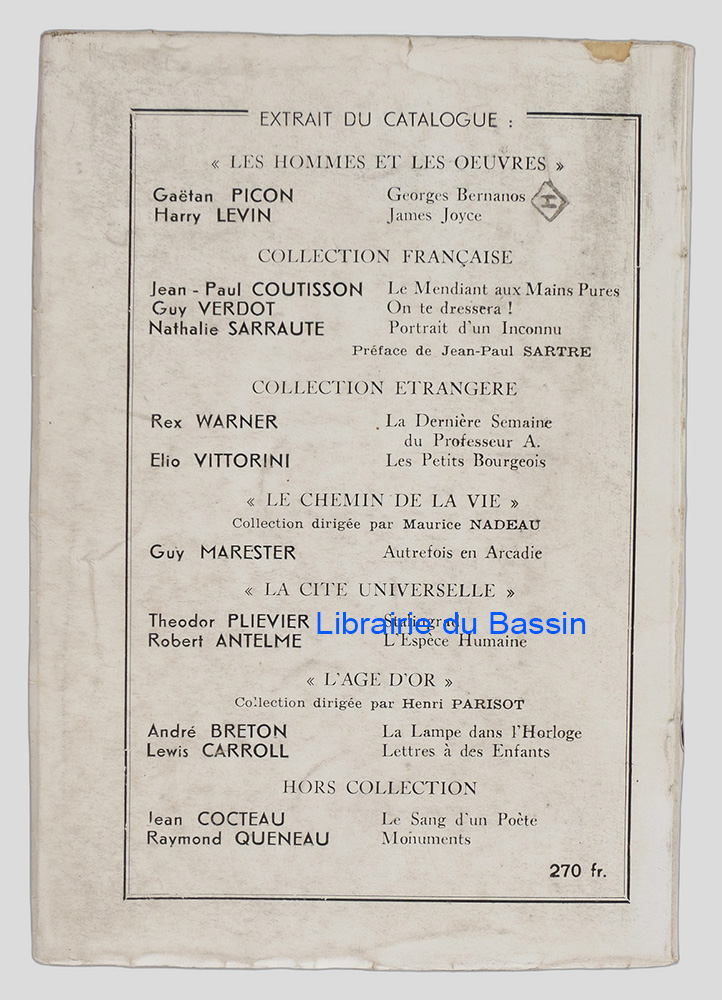 EXTRAIT DU CATALOGUE :
« LES HOMMES ET LES OEUVRES »
Gaëtan PICON Georges Bernanos
H
Harry LEVIN James Joyce
COLLECTION FRANÇAISE
Jean - Paul COUTISSON Le Mendiant aux Mains Pures
Guy VERDOT On te dressera !
Nathalie SARRAUTE Portrait d'un Inconnu
Préface de Jean-Paul SARTRE
COLLECTION ETRANGERE
Rex WARNER La Dernière Semaine
du Professeur A.
Elio VITTORINI Les Petits Bourgeois
« LE CHEMIN DE LA VIE »
Collection dirigée par Maurice NADEAU
Guy MARESTER Autrefois en Arcadie
« LA CITE UNIVERSELLE »
Theodor PLIEVIER Stalingrad
Librairie du Bassin
Robert ANTELME L'Espèce Humaine
« L'AGE D'OR »
Collection dirigée par Henri PARISOT
André BRETON La Lampe dans l'Horloge
Lewis CARROLL Lettres à des Enfants
HORS COLLECTION
Jean COCTEAU Le Sang d'un Poète
Raymond QUENEAU Monuments
270 fr.